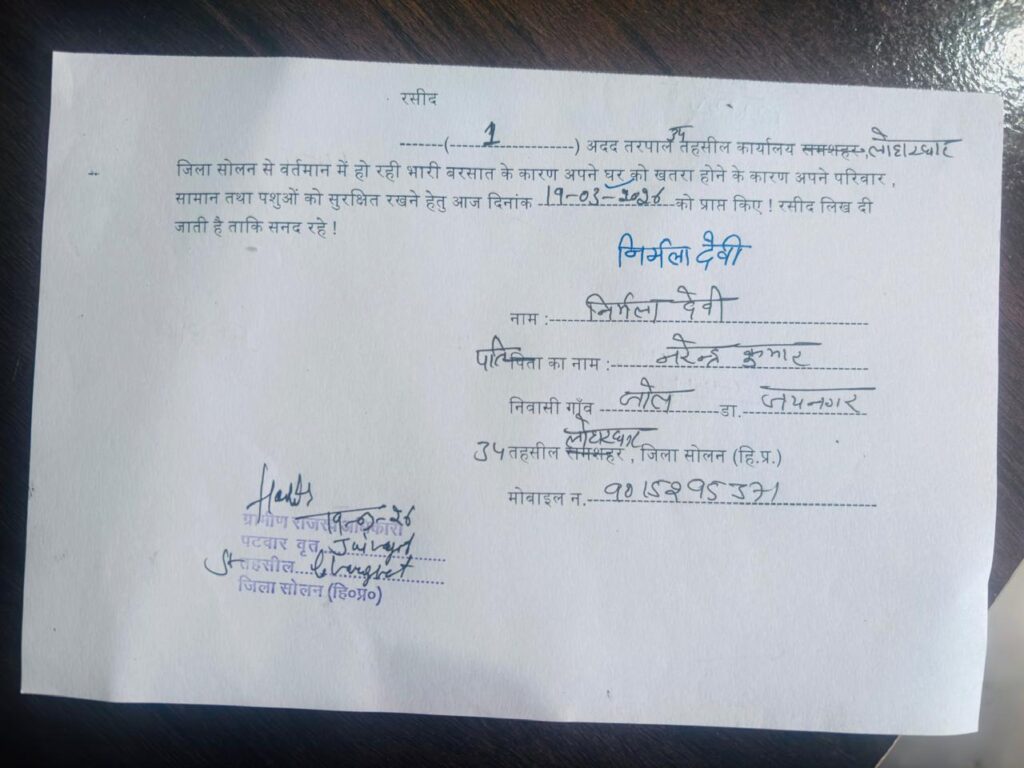 रसीद
------(-----1-----------) अदद तरपाल उप तहसील कार्यालय रामशहर, लोहारघाट
जिला सोलन से वर्तमान में हो रही भारी बरसात के कारण अपने घर को खतरा होने के कारण अपने परिवार ,
सामान तथा पशुओं को सुरक्षित रखने हेतु आज दिनांक 19-03-2026 को प्राप्त किए ! रसीद लिख दी
जाती है ताकि सनद रहे !
निर्मला देवी
नाम :- निर्मला देवी
पति पिता का नाम :- नरेन्द्र कुमार
निवासी गाँव जोल डा. जयनगर
लोहारघाट
उप तहसील रामशहर , जिला सोलन (हि.प्र.)
मोबाइल न.- 9015295371
19-03-26
ग्रामीण राजस्व अधिकारी
पटवार वृत
तहसील
जिला सोलन (हि०प्र०)